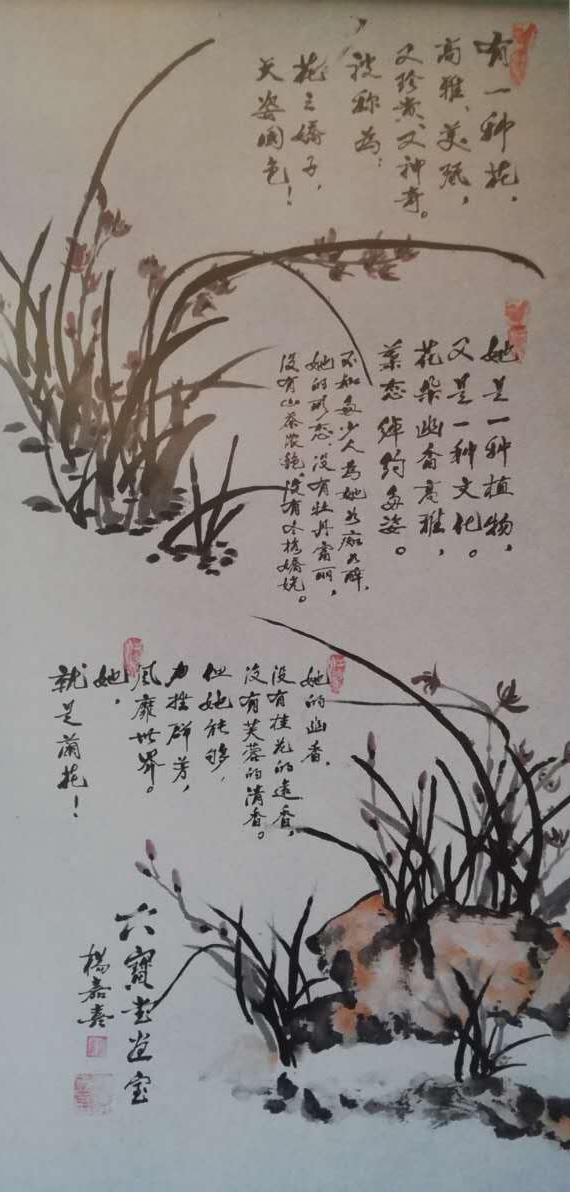 有一种花，
高雅、美观，
又珍贵、又神奇。
被称为：
花之娇子，
天姿国色！
她是一种植物，
又是一种文化。
花朵幽香高雅，
叶态绰约多姿。
不知多少人为她如痴如醉，
她的形态，没有牡丹富丽，
没有山茶浓艳，没有冬梅娇姹。
她的幽香，
没有桂花的远香，
没有芙蓉的清香。
但她能够，
力挫群芳，
风靡世界。
她，
就是蘭花！
六寶
楊嘉喜